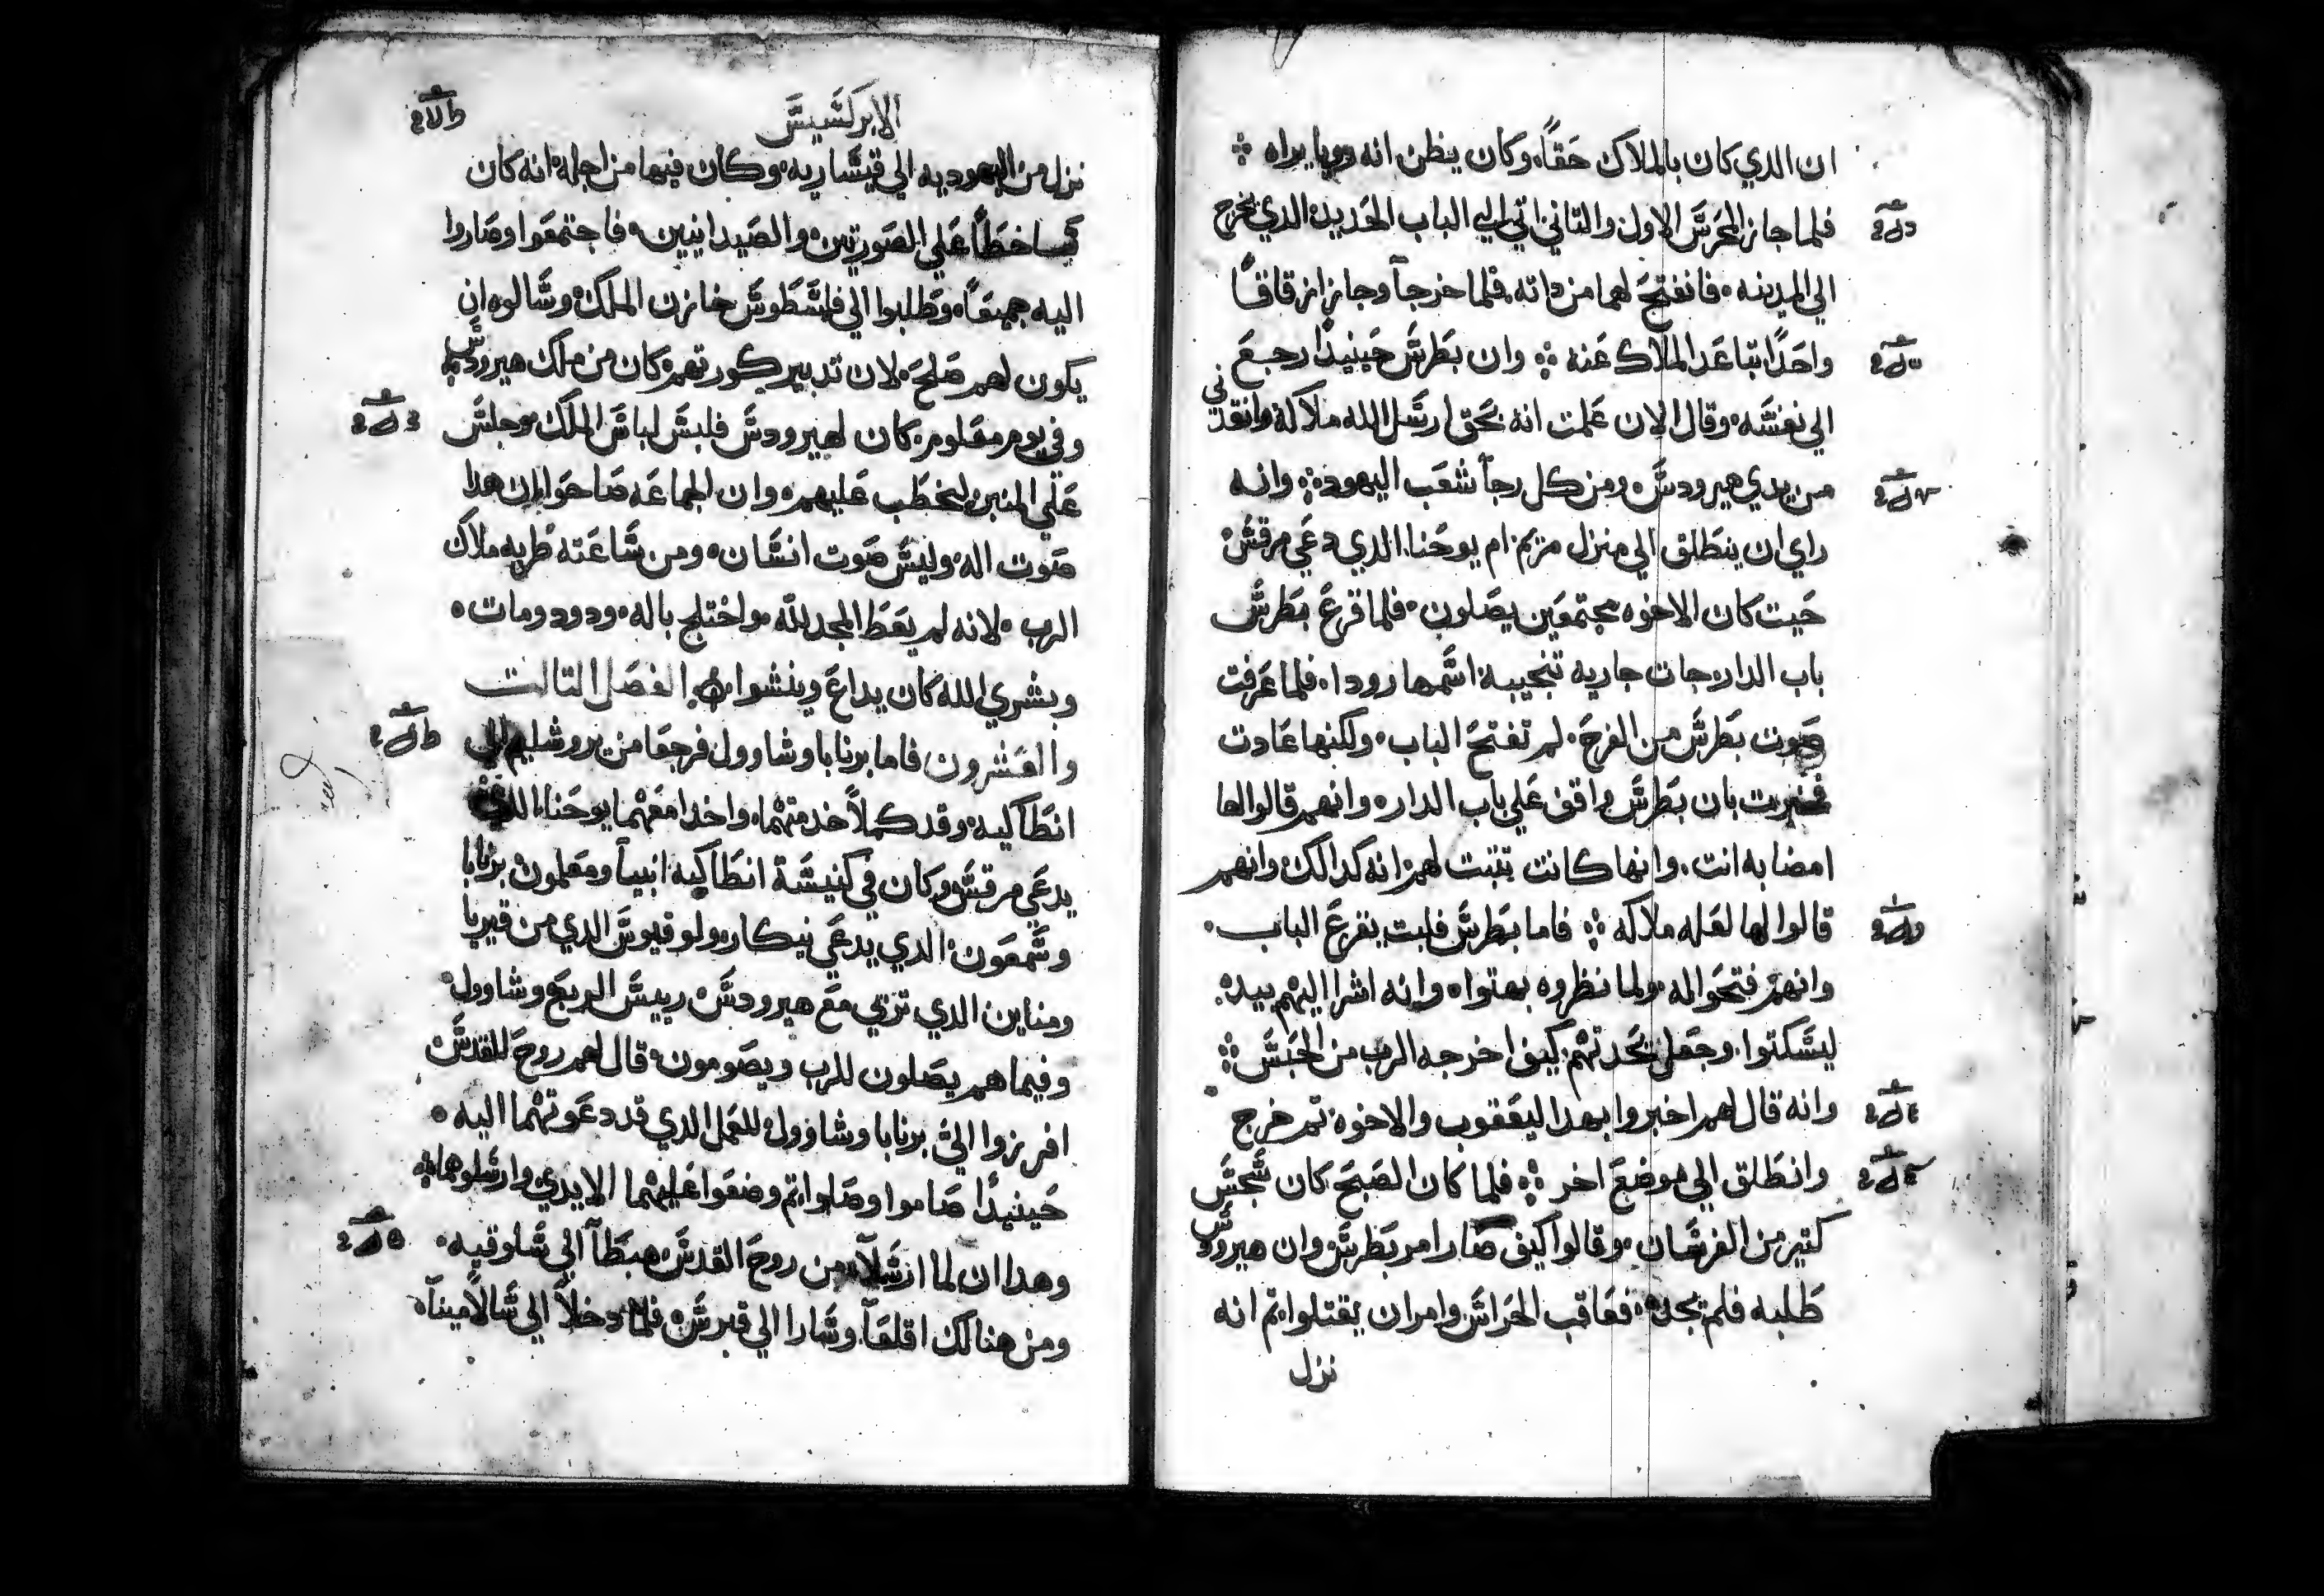 ان الدي كان بالملاك حقاً، وكان يظن انه رويا يراه
فلما جاز المحرس الاول والتاني اتي الي الباب الحديد الدي يخرج
الي المدينه. فانفتح لهما من داته. فلما خرجا وجازا زقاقاً
واحداً تباعد الملاك عنه وان بطرس حينيداً رجع
الي نفسه وقال الان علمت انه بحق ارسل الله ملاكه وانقدني
من يدي هيرودس ومن كل رجا شعب اليهود وانه
راي ان ينطلق الي منزل مريم ام يوحنا الدي دعي مرقس
حيت كان الاخوه مجتمعين يصلون. فلما قرع بطرس
باب الدار جات جاريه تنجيبه اسمها رودا. فلما عرفت
صوت بطرس من الفرح. لم تفتح الباب. ولكنها عادت
فخبرت بان بطرس واقف علي باب الدار وانهم قالوا لها
امضابه انت. وانها كانت تتبت لهم انه كدالك وانهم
قالوا لها لعله ملاكه فاما بطرس فلبت يقرع الباب.
وانهم فتحوا له ولما نظروه بهتوا وانه اشرا اليهم بيده.
ليسكتوا. وجعل يحدتهم كيف اخرجه الرب من الحبس
وانه قال لهم اخبروا بهدا ليعقوب والاخوه تم خرج
وانطلق الي موضع اخر فلما كان الصبح كان سجس
كتير من الفرسان. وقالوا كيف صار امر بطرس وان هيرودس
طلبه فلم يجده. فعاقب الحراس وامر ان يقتلوا تم انه
نزل
الابركسيس
نزل من اليهوديه الي قيساريه وكان فيها من اجله انه كان
ساخطاً علي الصوريين والصيدانيين. فاجتمعوا وصاروا
اليه جميعاً وطلبوا الي فلسطوس خازن الملك وسالوه ان
يكون لهم صلح لان تدبير كورتهم كان من ملك هيرودس
وفي يوم معلوم كان لهيرودس فلبس لباس الملك وجلس
علي المنبر ليخطب عليهم وان الجماعه صاحوا ان هدا
صوت اله وليس صوت انسان ومن ساعته ضربه ملاك
الرب. لانه لم يعط المجد لله واختلج باله ودود ومات
وبشري الله كان يداع وينشوا الفصل التالت
والعشرون فاما برنابا وشاوول فرجعا من يروشليم الي
انطاكيه وقد كملا خدمتهما. واخدا معهما يوحنا الدي
يدعي مرقس وكان في كنيسة انطاكيه انبيا ومعلمون برنابا
وسمعون الدي يدعي نيكار ولوقيوس الدي من قيريا
ومناين الدي تربي مع هيرودس رييس الربع وشاوول
وفيما هم يصلون للرب ويصومون قال لهم روح القدس
افرزوا الي برنابا وشاوول للعمل الدي قد دعوتهما اليه
حينيداً صاموا وصلوا تم وضعوا عليهما الايدي وارسلوهما
وهدا ان لما ارسلا من روح القدس هبطا الي سلوقيه.
ومن هنالك اقلعا وسارا الي قبرس فلما دخلا الي سالامينا